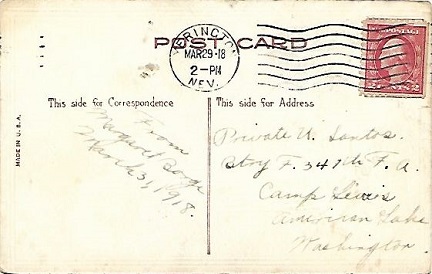 POST CARD
YERINGTON
MAR 29-18
2-PM
NEV.
This side for Correspondence
This side for Address
MADE IN U.S.A.
From
Margaret
March 3, 1918.
Private A. Santos.
Btry F. 347th F. A.
Camp Lewis
American Lake
Washington.